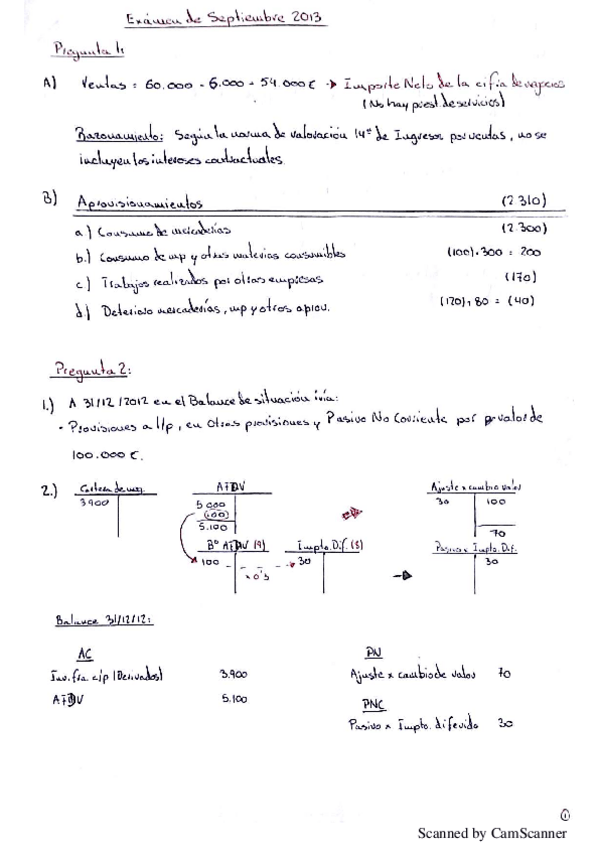 Exámen de Septiembre 2013
Pregunta 1:
A) Ventas = 60.000 - 6.000 = 54.000€ → Importe Neto de la cifra de negocios
(No hay prest. de servicios)
Razonamiento: Según la norma de valoración 14ª de Ingresos por ventas, no se
incluyen los intereses contractuales.
B) Aprovisionamientos (2.310)
a) Consumo de mercaderías (2.300)
b.) Consumo de mp y otras materias consumibles (100)+300 = 200
c) Trabajos realizados por otras empresas (170)
d.) Deterioro mercaderías, mp y otros aprov. (120)+80 = (40)
Pregunta 2:
1.) A 31/12/2012 en el Balance de situación iría:
- Provisiones a l/p, en Otras provisiones y Pasivo No Corriente por valor de
100.000 €.
2.) Cartera de
3.900
AFDV
5.000
(100)
5.100
Ajuste x cambio valor
30 100
70
Bº AFDV (9)
100
x 0'3
Impto. Dif. (8)
30
Pasivo x Impto. Dif.
30
Balance 31/12/12:
AC
Inv. fra c/p (Derivados) 3.900
AFDV 5.100
PN
Ajuste x cambio de valor 70
PNC
Pasivo x Impto. diferido 30
1
Scanned by CamScanner